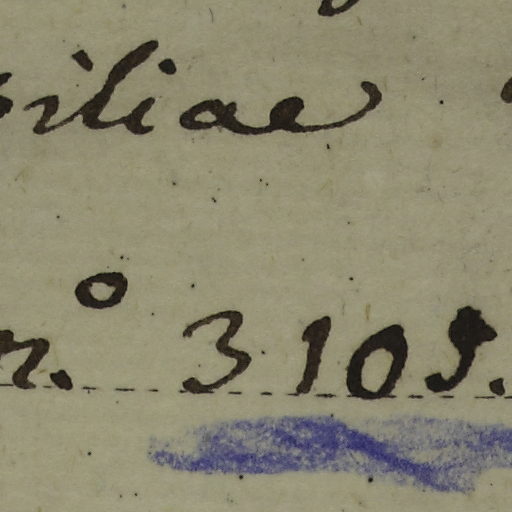 siliae
n.º 3109.